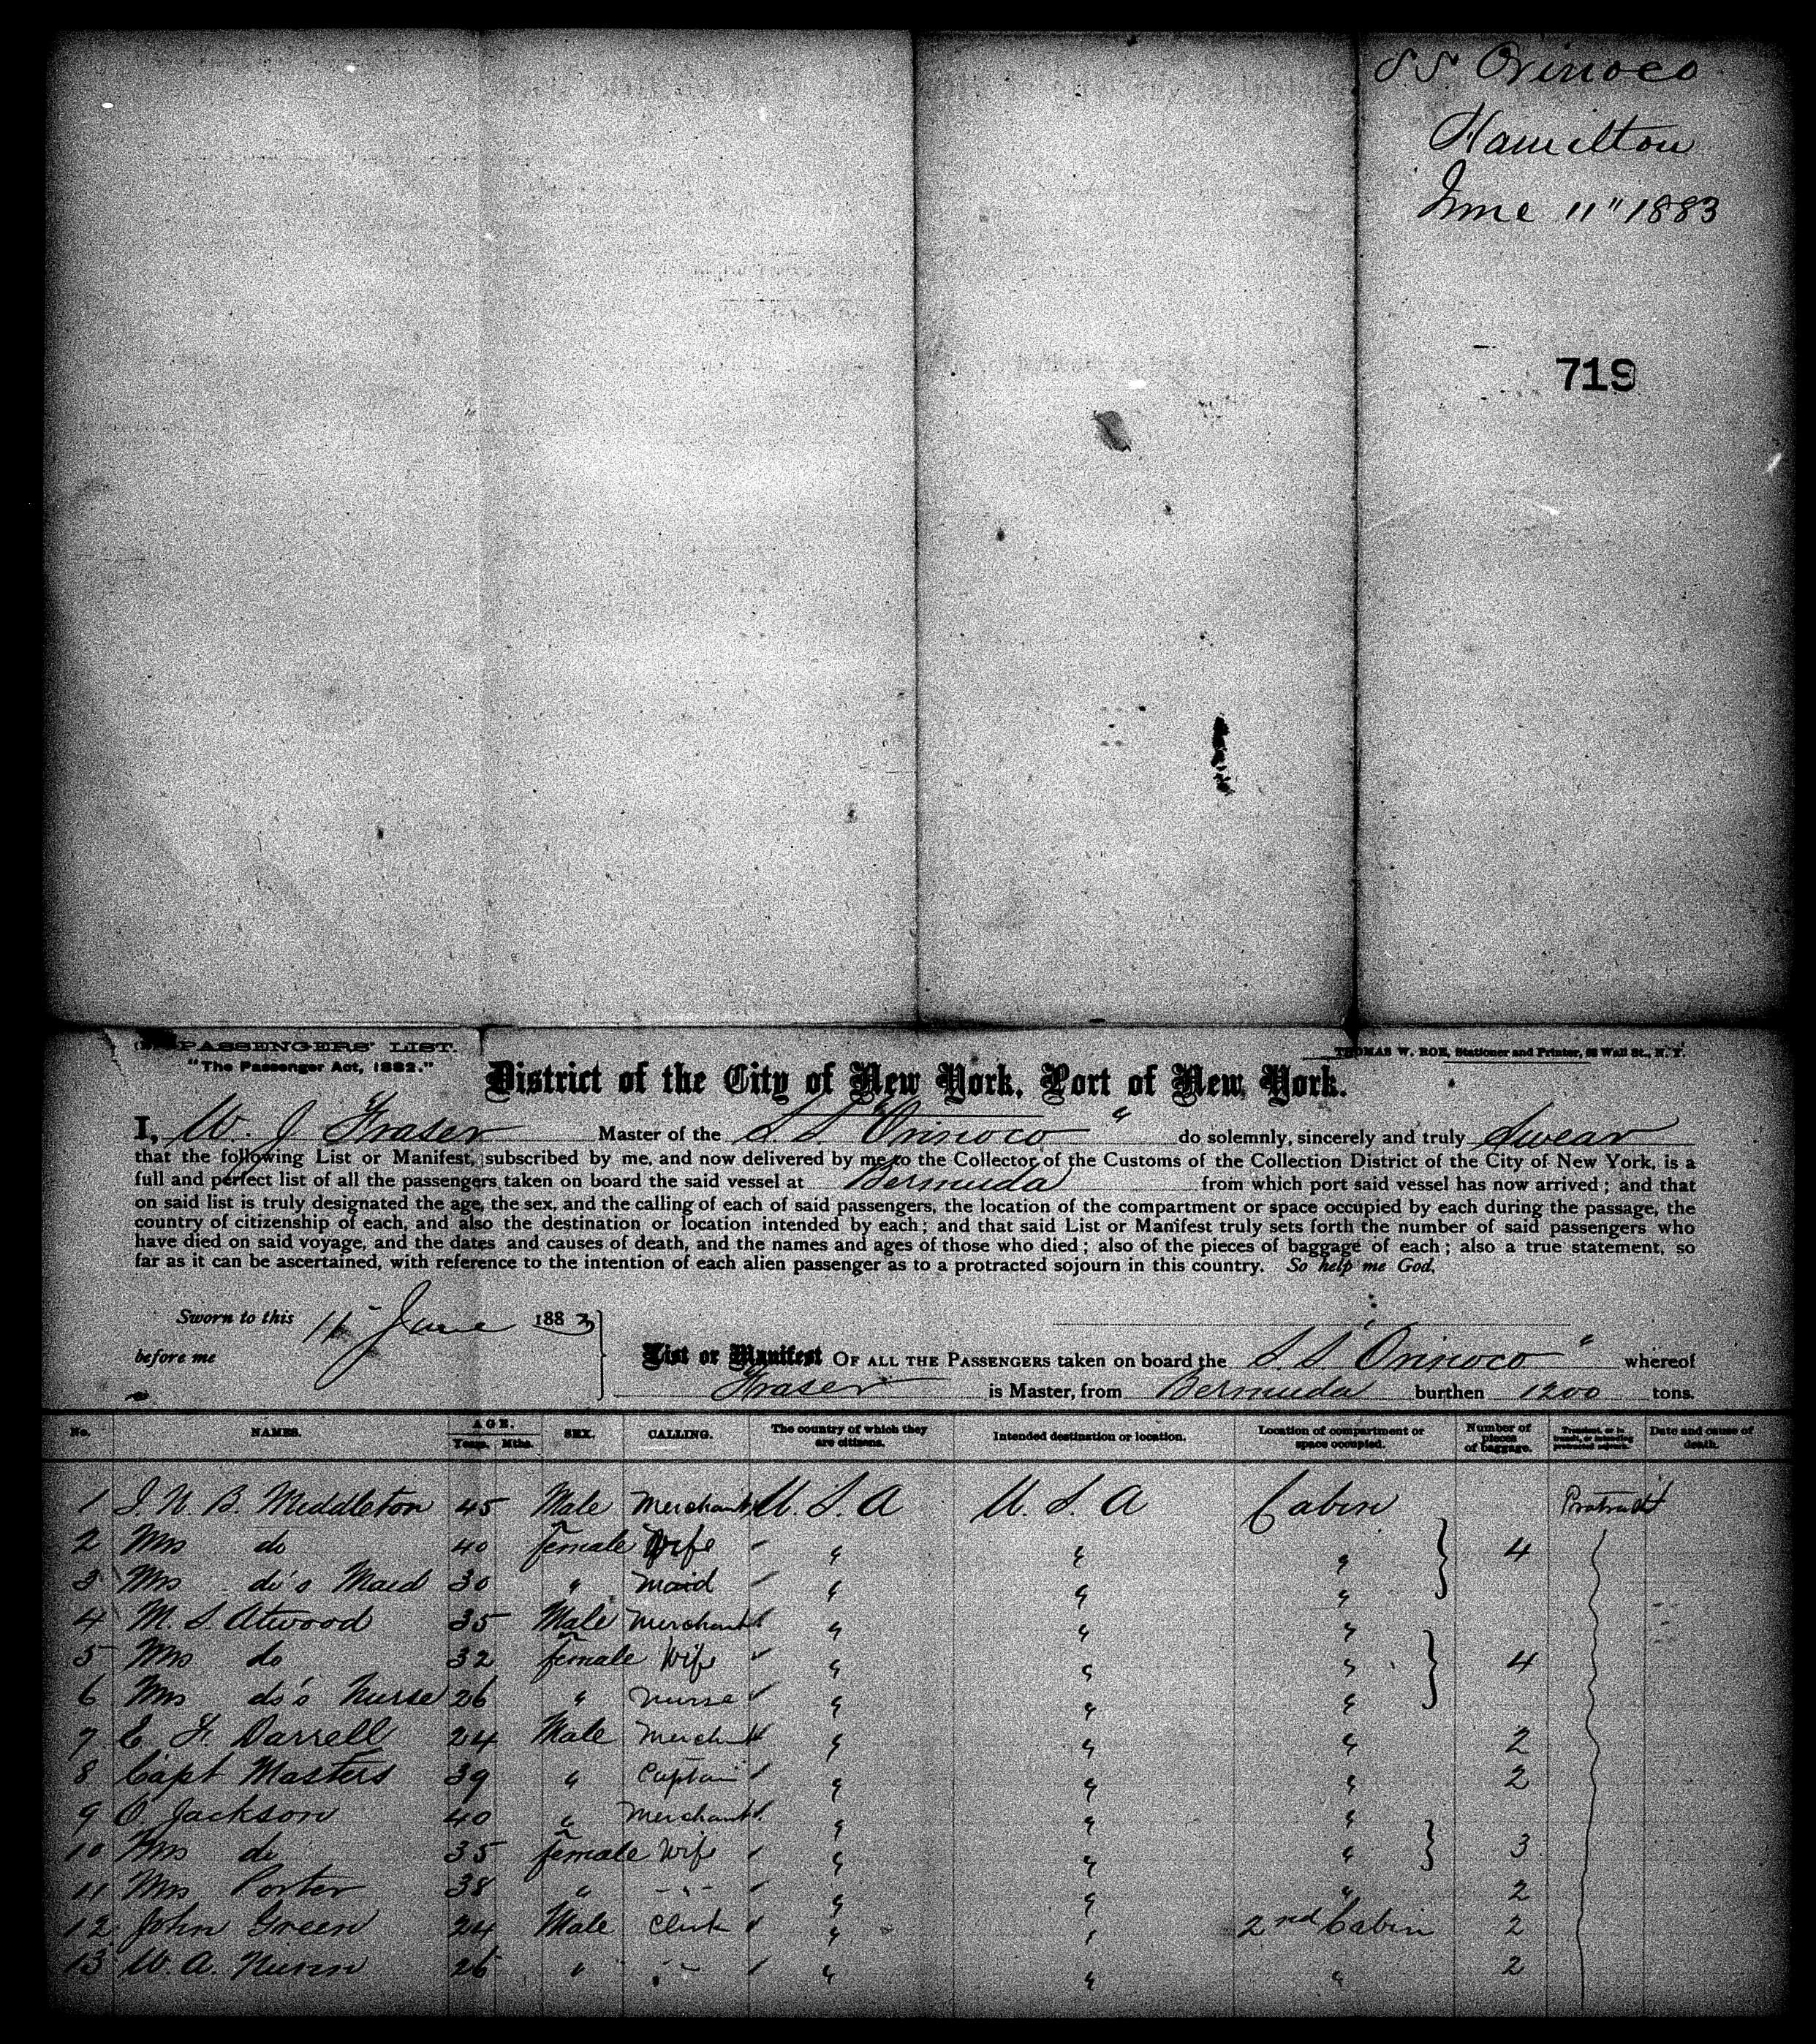 SS Orinoco
Hamilton
June 11" 1883
719
PASSENGERS' LIST.
"The Passenger Act, 1882."
THOMAS W. ROE, Stationer and Printer, Wall St., N. Y.
District of the City of New York, Port of New York.
I, W. J Fraser Master of the S.S "Orinoco" do solemnly, sincerely and truly Swear
that the following List or Manifest, subscribed by me, and now delivered by me to the Collector of the Customs of the Collection District of the City of New York, is a
full and perfect list of all the passengers taken on board the said vessel at Bermuda from which port said vessel has now arrived; and that
on said list is truly designated the age, the sex, and the calling of each of said passengers, the location of the compartment or space occupied by each during the passage, the
country of citizenship of each, and also the destination or location intended by each; and that said List or Manifest truly sets forth the number of said passengers who
have died on said voyage, and the dates and causes of death, and the names and ages of those who died; also of the pieces of baggage of each; also a true statement, so
far as it can be ascertained, with reference to the intention of each alien passenger as to a protracted sojourn in this country. So help me God.
Sworn to this 11 June 1883
before me
List or Manifest OF ALL THE PASSENGERS taken on board the S.S "Orinoco" whereof
Fraser is Master, from Bermuda burthen 1200 tons.
No. NAMES. AGE. Years. Mths. SEX. CALLING. The country of which they are citizens. Intended destination or location. Location of compartment or space occupied. Number of pieces of baggage. Transient, or in transit, or intending protracted sojourn. Date and cause of death.
1 J. N. B. Middleton 45 Male Merchant U. S. A U. S. A Cabin Protract
2 Mrs do 40 female Wife " " " 4
3 Mrs do's Maid 30 " Maid " " "
4 M. S. Atwood 35 Male Merchant " " "
5 Mrs do 32 female Wife " " " 4
6 Mrs do's Nurse 26 " Nurse " " "
7 E. F. Darrell 24 Male Merchant " " " 2
8 Capt Masters 39 " Captain " " " 2
9 O. Jackson 40 " Merchant " " "
10 Mrs do 35 female Wife " " " 3
11 Mrs Porter 38 " - - " " " 2
12 John Green 24 Male Clerk " " 2nd Cabin 2
13 W. A. 26 " - - " " " 2